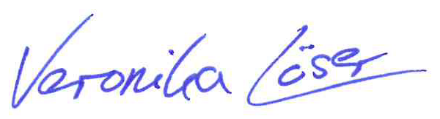 Veronika Löser